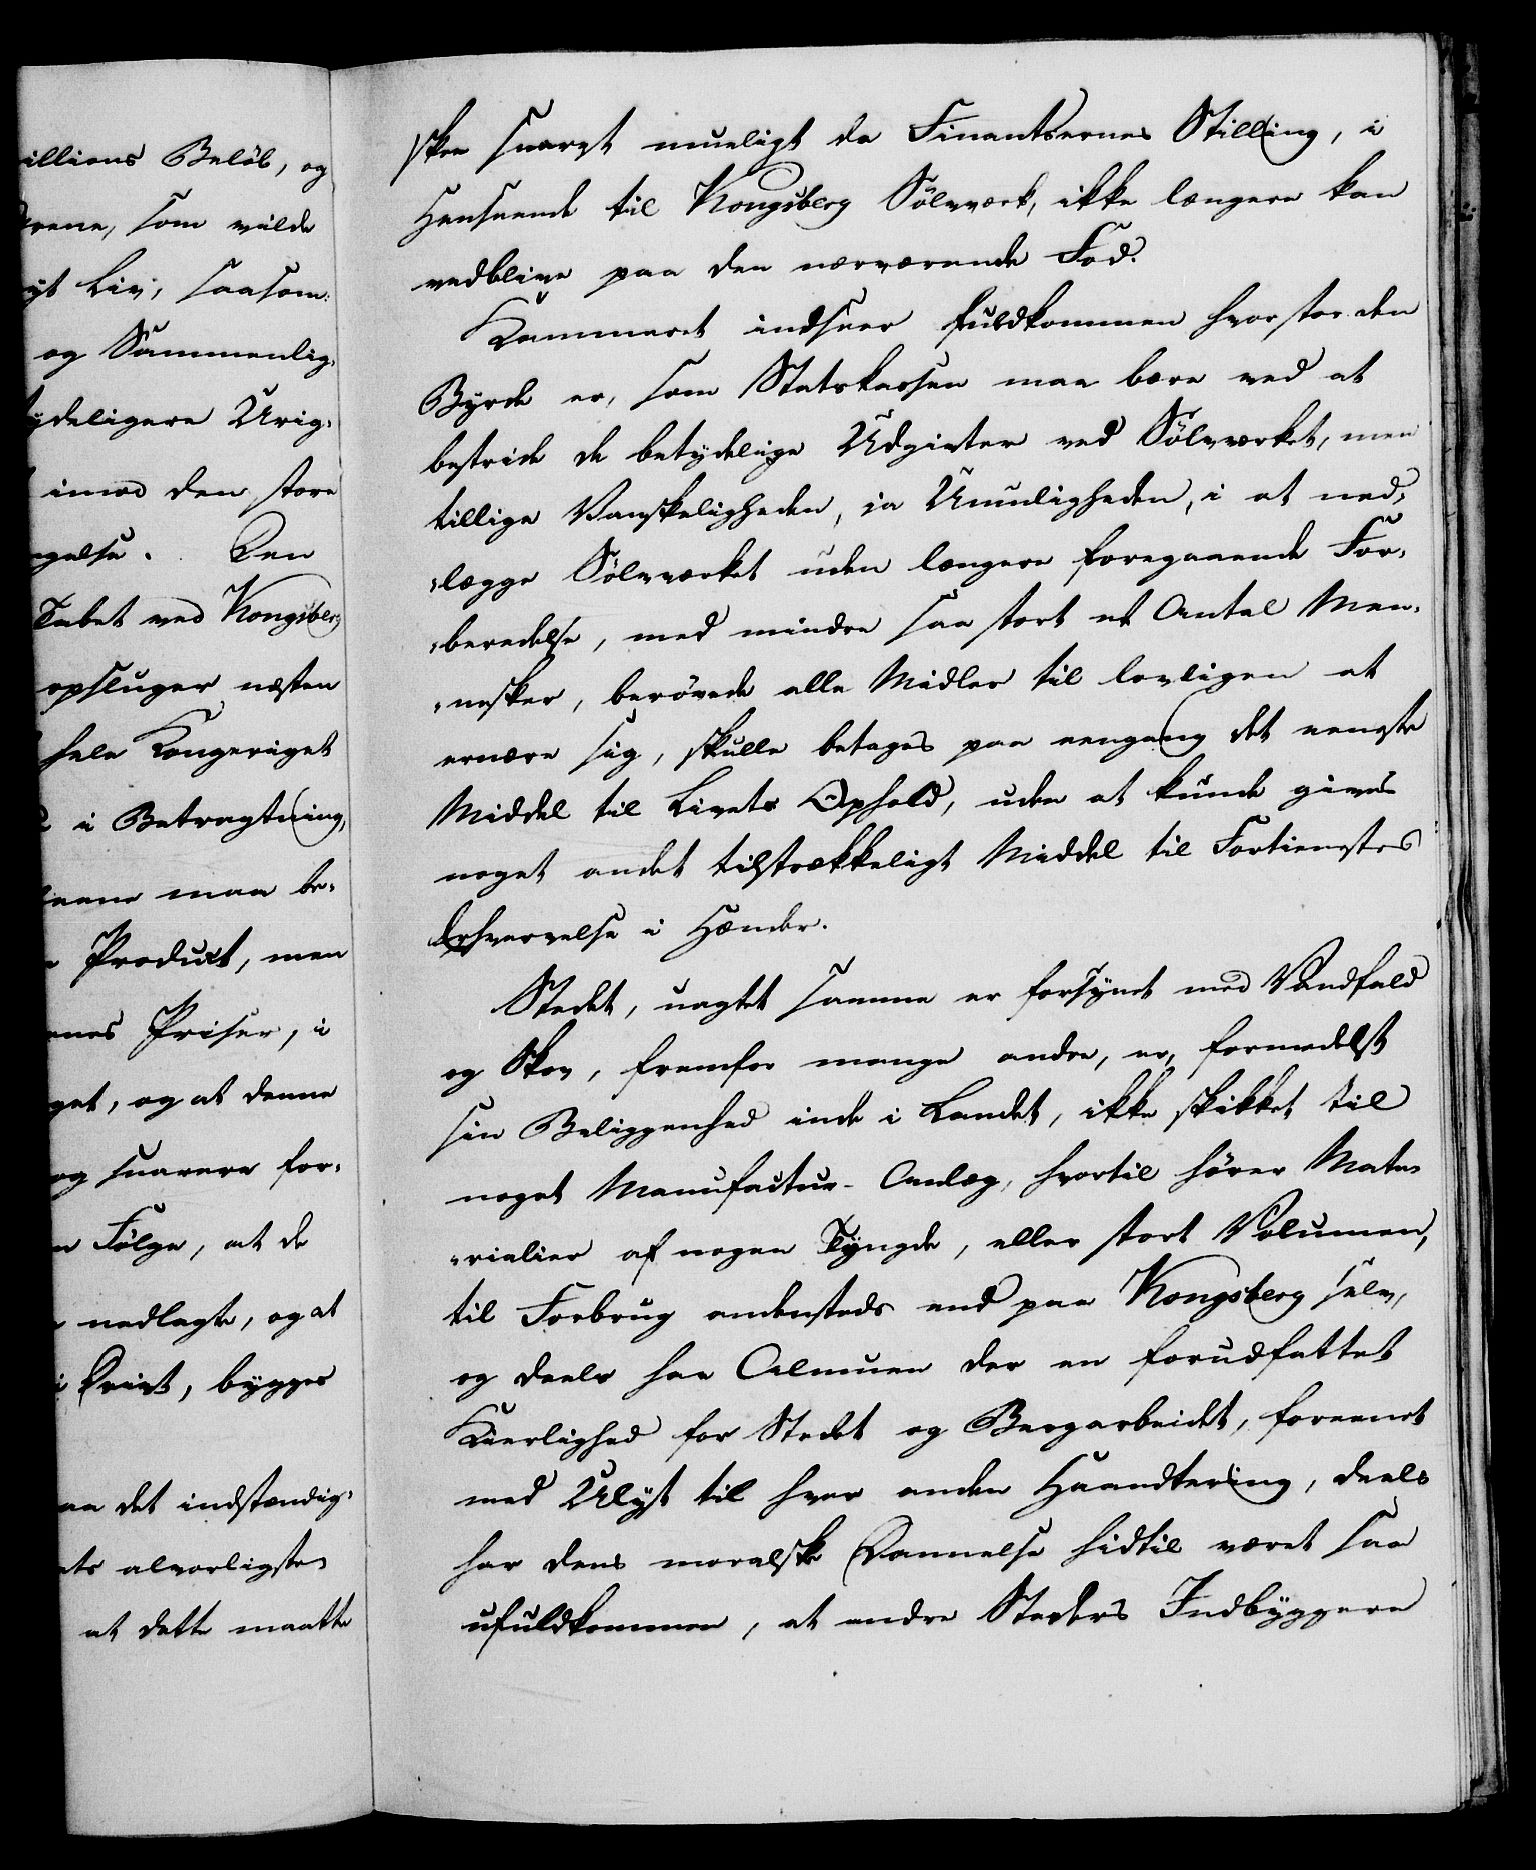 illions Beløb, og
rene, som vilde
yt Liv, saasom
og Sammenlig¬
ydeligere Urig¬
imod den store
gelse. Den
Tabet ved Kongsberg
opsluger næsten
hele Kongeriget
i Betragtning,
maa be¬
Product, men
enes Priser, i
get, og at denne
og snarere for¬
Følge, at de
nedlagte, og at
i Drivt, bygges
det indstændig¬
ets alvorligste
at dette maatte
skee snarest mueligt da Finantsernes Stilling, i
Henseende til Kongsberg Sölvværk, ikke længere kan
vedblive paa den nærværende Fod.
Kammeret indseer fuldkommen hvor stor den
Byrde er, som Statskassen maa bære ved at
bestride de betydelige Udgivter ved Sölvværket, men
tillige Vanskeligheden, ja Umuligheden, i at ned¬
„lægge Sölvværket uden længere foregaaende For¬
„beredelse, med mindre saa stort et Antal Men¬
„nesker, berövede alle Midler til lovligen at
ernære sig, skulle betages paa eengang det eeneste
Middel til Livets Ophold, uden at kunde gives
noget andet tilstrækkeligt Middel til Fortienestes
Erhvervelse i Hænder.
Stedet, uagtet samme er forsynet med Vandfald
og Skov, fremfor mange andre, er, formedelst
sin Beliggenhed inde i Landet, ikke skikket til
noget Manufactur-Anlæg, hvortil hörer Mate¬
„rialier af nogen Tyngde, eller stort Volumen,
til Forbrug andensteds end paa Kongsberg selv,
og deels har Almuen der en forudfattet
Kierlighed for Stedet og Bergarbeidet, foreenet
med Ulyst til hver anden Haandtering, deels
har dens moralske Dannelse hidtil været saa
ufuldkommen, at andre Steders Indbyggere